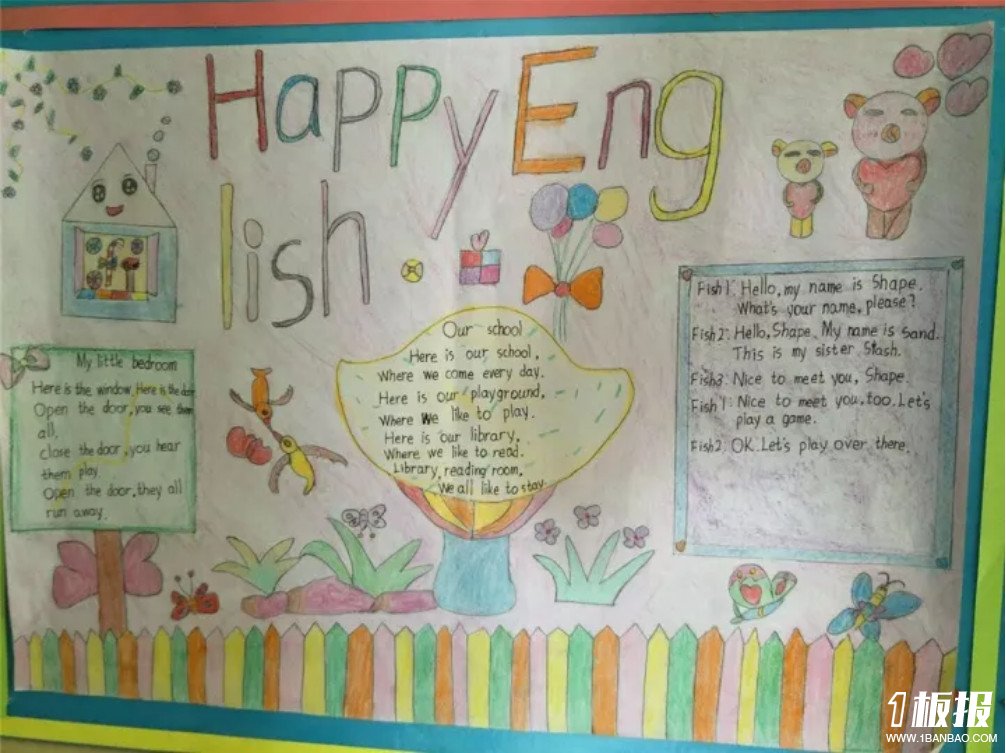 Happy Eng
lish.
My little bedroom
Here is the window, Here is the door
Open the door, you see them
all.
close the door, you hear
them play
Open the door, they all
run away.
Our school
Here is our school,
Where we come every day.
Here is our playground,
Where we like to play.
Here is our library,
Where we like to read.
Library, reading room,
We all like to stay.
Fish1: Hello, my name is Shape.
What's your name, please?
Fish2: Hello, Shape. My name is sand.
This is my sister Stash.
Fish3: Nice to meet you, Shape.
Fish1: Nice to meet you, too. Let's
play a game.
Fish2: OK. Let's play over there.
1板报
WWW.1BANBAO.COM